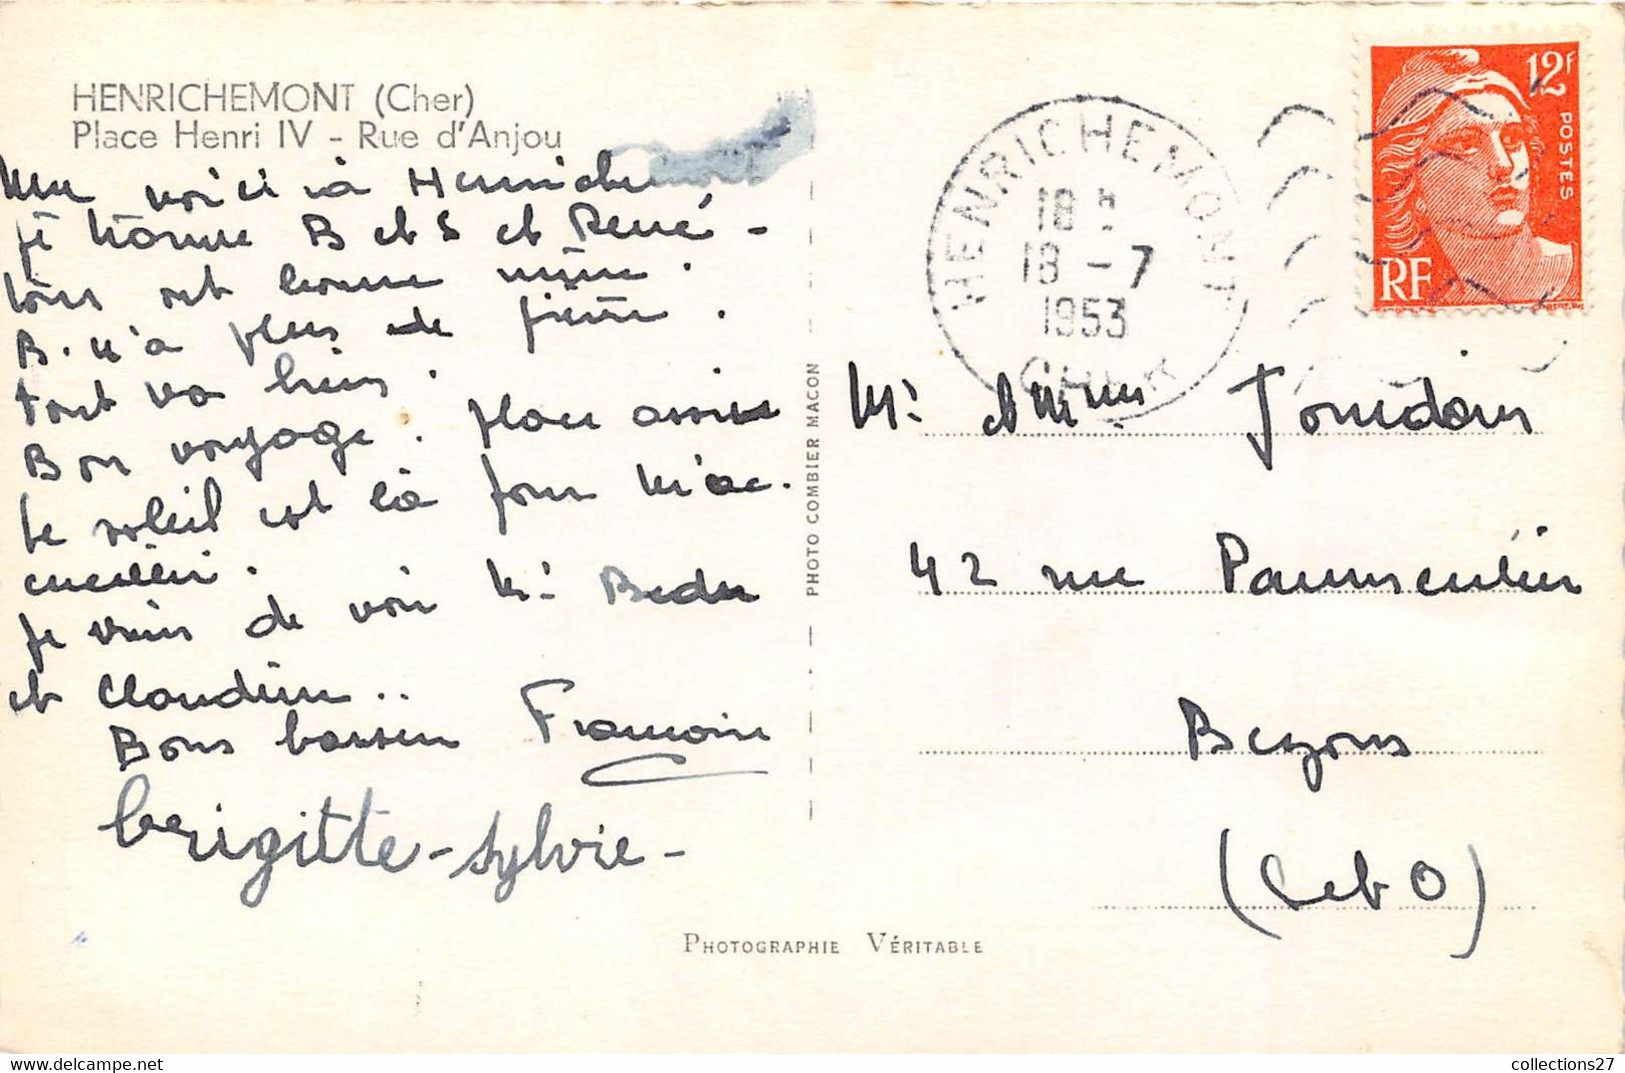 HENRICHEMONT (Cher)
Place Henri IV - Rue d'Anjou
Me voici à Henrichemont
je trouve B et S et René -
tous ont bonne mine.
B. n'a plus de fièvre.
tout va bien.
Bon voyage. place assise
le soleil est là pour m'ac.
cueillir.
Je viens de voir Mr Bedu
et Claudine..
Bons baisers Françoise
brigitte - sylvie -
PHOTOGRAPHIE VÉRITABLE
PHOTO COMBIER MACON
HENRICHEMONT
18 H
18 - 7
1953
CHER
12F
POSTES
RF
Mr et Mme Jourdain
42 rue Parmentier
Bezons
(S et O)
collections27
https://www.delcampe.net